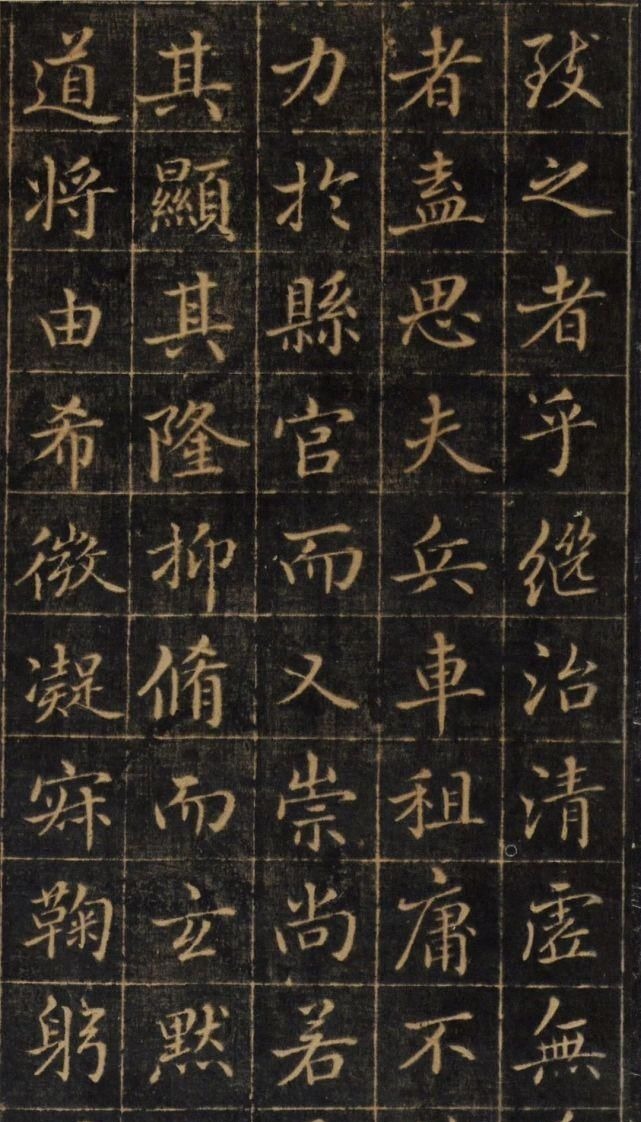 致之者乎継治清虚無
者盖思夫兵車租庸不
力於縣官而又崇尚若
其顯其隆抑脩而玄默
道将由希微凝寂鞠躬